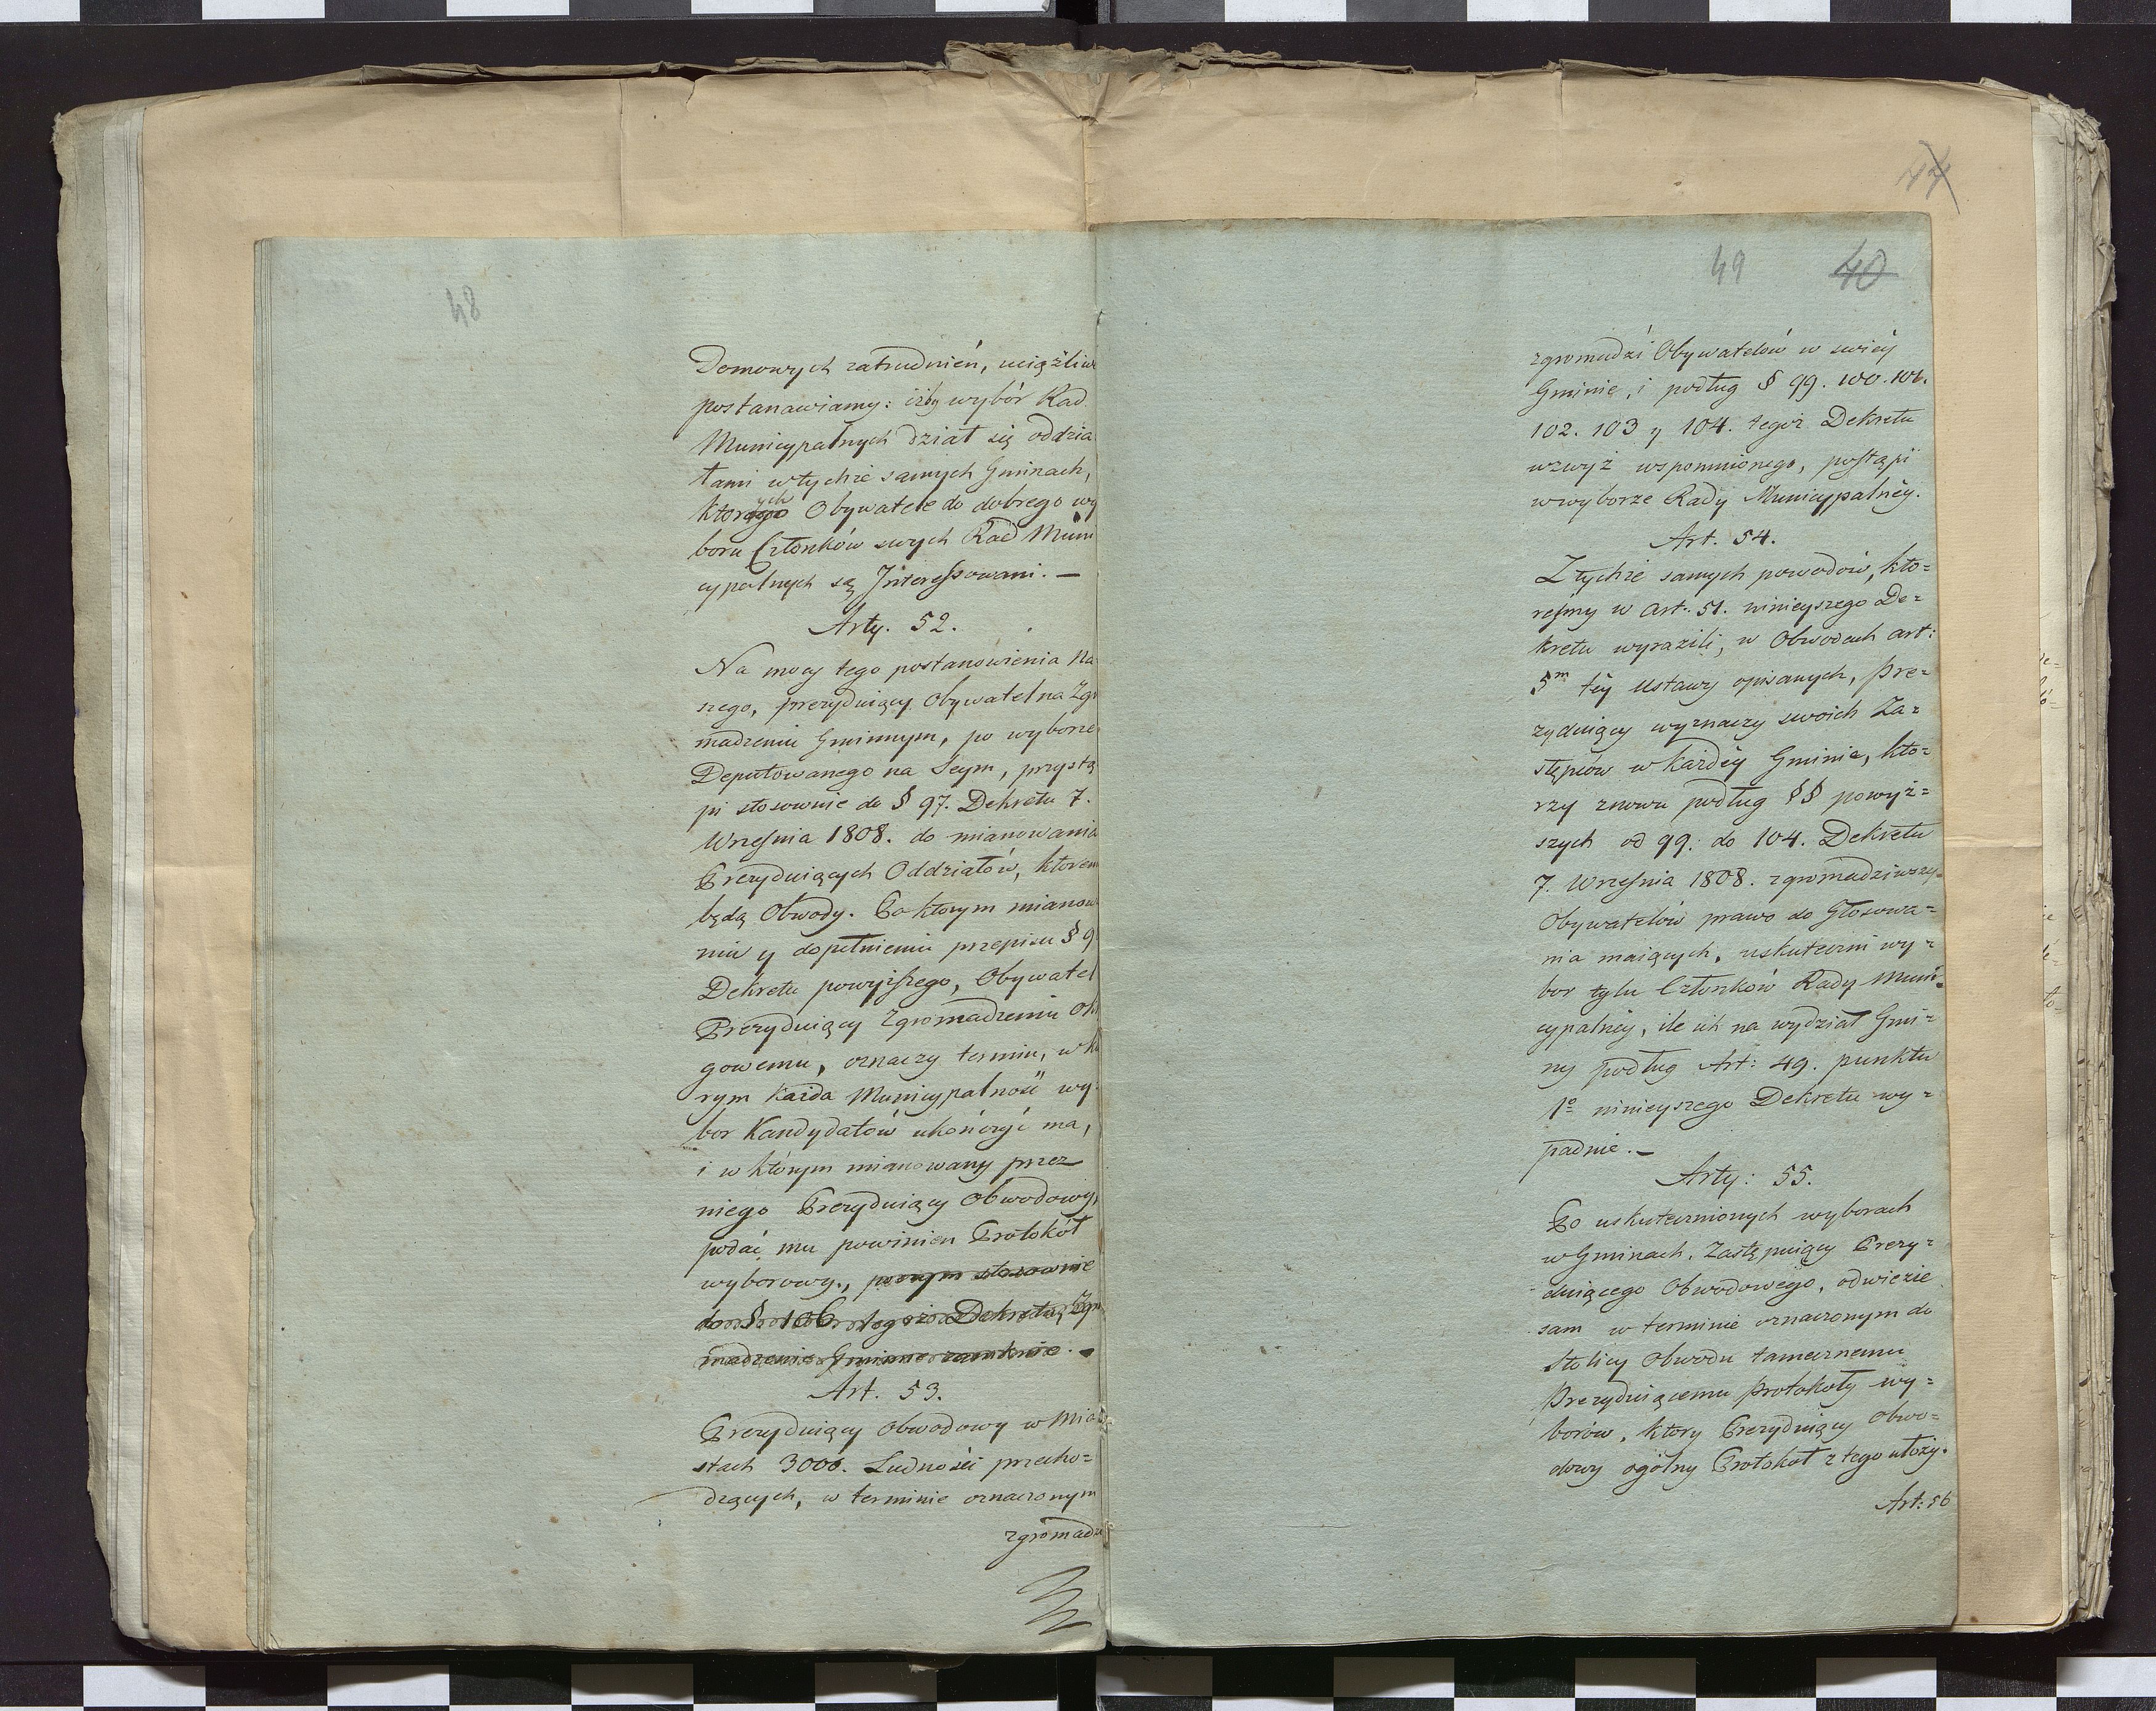 48
Domowych zatrudnień, uciążliwe
postanawiamy: iżby wybór Rad
Municypalnych dział się oddzia
łami w tychże samych Gminach,
ktorych Obywatele do dobrego wy
boru Członków swych Rad Muni
cypalnych są Interessowani. —
Arty. 52.
Na mocy tego postanowienia Na
szego, prezyduiący Obywatel na Zgro
madzeniu Gminnym, po wyborze
Deputowanego na Seym, przystą
pi stosownie do § 97. Dekretu 7.
Września 1808. do mianowania
Prezyduiących Oddziałów, ktorem
będą Obwody. Po ktorym mianowa
niu y dopełnieniu przepisu § 9
Dekretu powyższego, Obywatel
Prezyduiący Zgromadzeniu Okrę
gowemu, oznaczy termin, w któ
rym każda Municypalność wy-
bor Kandydatów ukończyć ma,
i w którym mianowany przez
niego Prezyduiący Obwodowy,
podać mu powinien Protokół
wyborowy., poczym stosownie
do § 106 tegoż Dekretu, Zgro
madzenie Gminne zamknie. -
Art. 53.
Prezyduiący Obwodowy w Mia
stach 3000. Ludności przecho=
dzących, w terminie oznaczonym
zgromadzi
44
49 40
zgromadzi Obywatelów w swiéy
Gminie, i podług § 99. 100. 101.
102. 103 y 104. tegoż Dekretu
wzwyż wspomnionego, postąpi
w wyborze Rady Municypalnéy.
Art. 54.
Z tychże samych powodów, któ=
reśmy w Art. 51. ninieyszego De=
kretu wyrazili, w Obwodach art:
5m téy Ustawy opisanych, Pre=
zyduiący wyznaczy swoich Za=
stępców w każdéy Gminie, któ=
rzy znowu podług §§ powyż=
szych od 99. do 104. Dekretu
7. Września 1808. zgromadziwszy
Obywatelów prawo do Głosowa=
nia maiących, uskuteczni wy=
bor tylu Członków Rady Muni=
cypalnéy, ile ich na wydział Gmi=
ny podług Art: 49. punktu
1º ninieyszego Dekretu wy=
padnie. —
Arty: 55.
Po uskutecznionych wyborach
w Gminach, Zastępuiący Prezy=
duiącego Obwodowego, odwiezie
sam w terminie oznaczonym do
stolicy Obwodu tamecznemu
Prezyduiącemu protokoły wy=
borów, ktory Prezyduiący Obwo=
dowy ogólny Protokoł z tego ułoży.
Art: 56